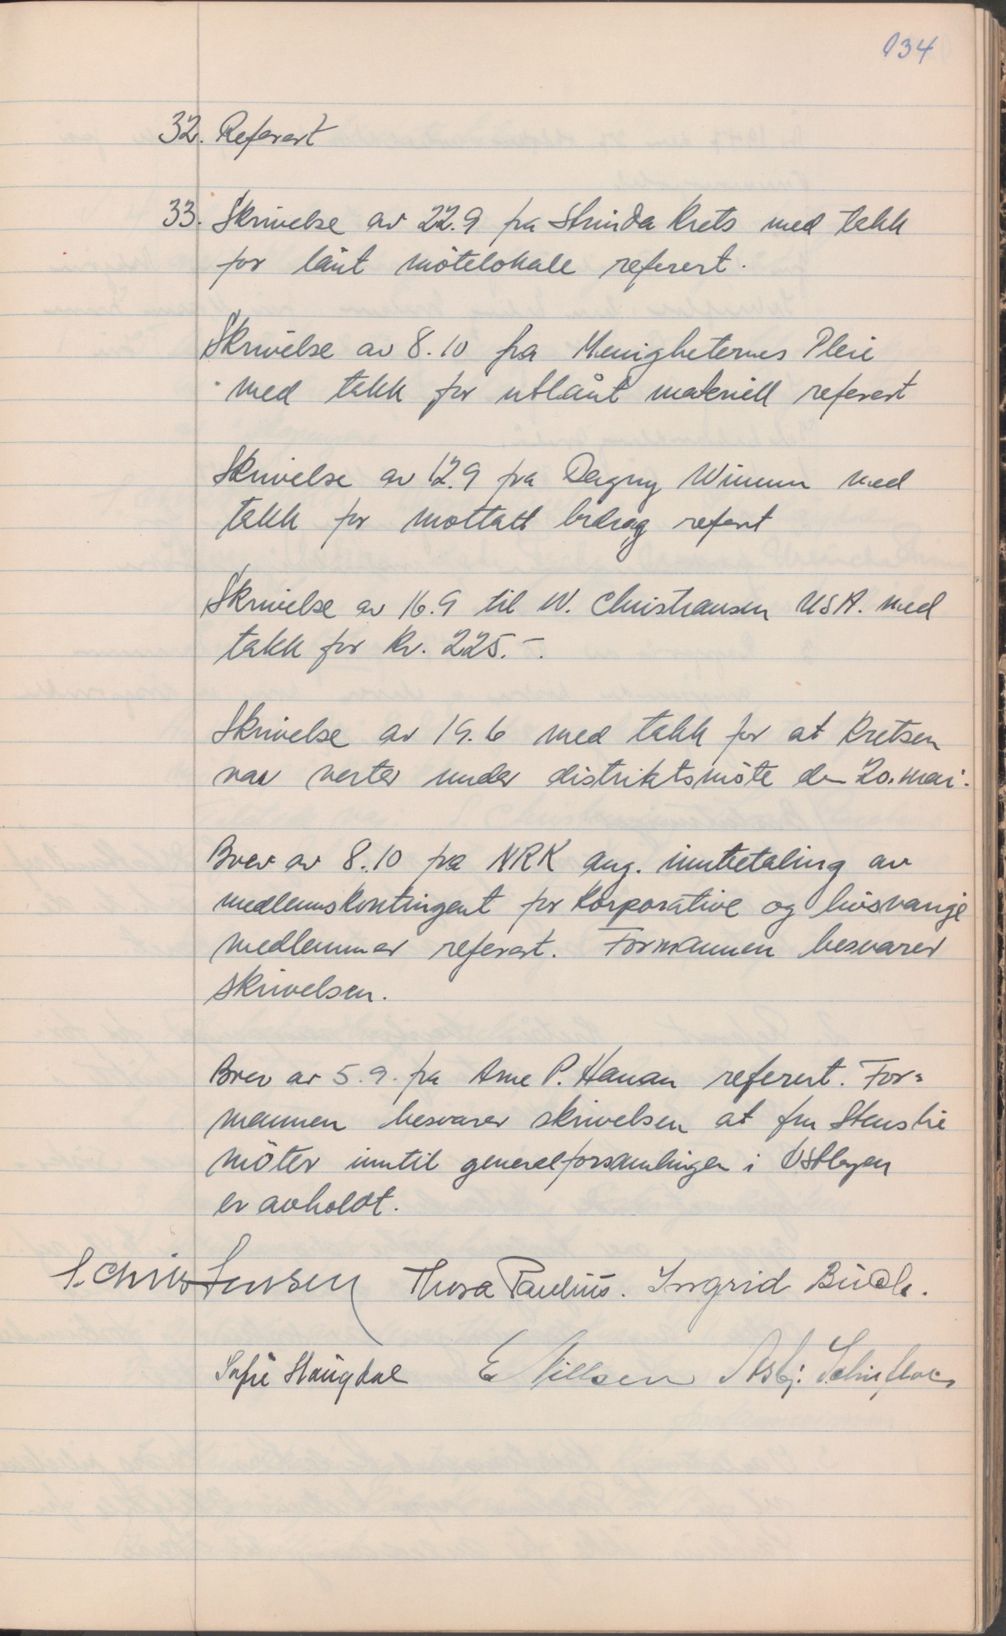 134
32. Referert
33. Skrivelse av 22.9 fra Strinda Krets med takk
for lånt møtelokale referert.
Skrivelse av 8.10 fra Menigheternes Pleie
med takk for utlånt materiell referert
Skrivelse av 12.9 fra Dagny Wimm med
takk for mottatt bidrag refert
Skrivelse av 16.9 til W. Christiansen USA. med
takk for kr. 225.-.
Skrivelse av 19.6 med takk for at Kretsen
var verter under distriktsmöte den 20. mai.
Brev av 8.10 fra NRK ang. innbetaling av
medlemskontingent for Korporative og livsvarige
medlemmer referert. Formannen besvarer
skrivelsen.
Brev av 5.9. fra Arne P. Hanan referert. For=
mannen besvarer skrivelsen at fru Stenslie
möter inntil generalforsamlingen i Östbyen
er avholdt.
Thora Paulius. Ingrid Buch.
Sofie Haugdal E Nillsen Asbj: